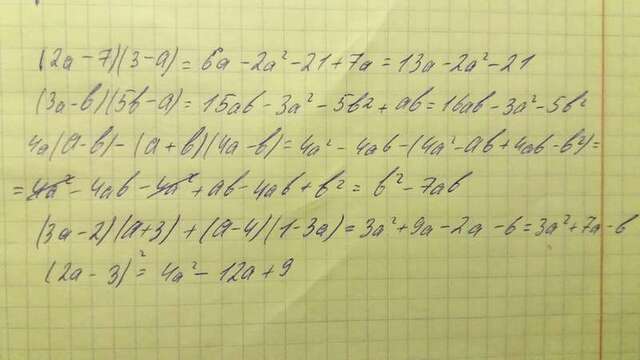 (2a-7)(3-a)=6a-2a²-21+7a=13a-2a²-21
(3a-b)(5b-a)=15ab-3a²-5b²+ab=16ab-3a²-5b²
4a(a-b)-(a+b)(4a-b)=4a²-4ab-(4a²-ab+4ab-b²)=
=4a²-4ab-4a²+ab-4ab+b²=b²-7ab
(3a-2)(a+3)+(a-4)(1-3a)=3a²+9a-2a-6=3a²+7a-6
(2a-3)²=4a²-12a+9